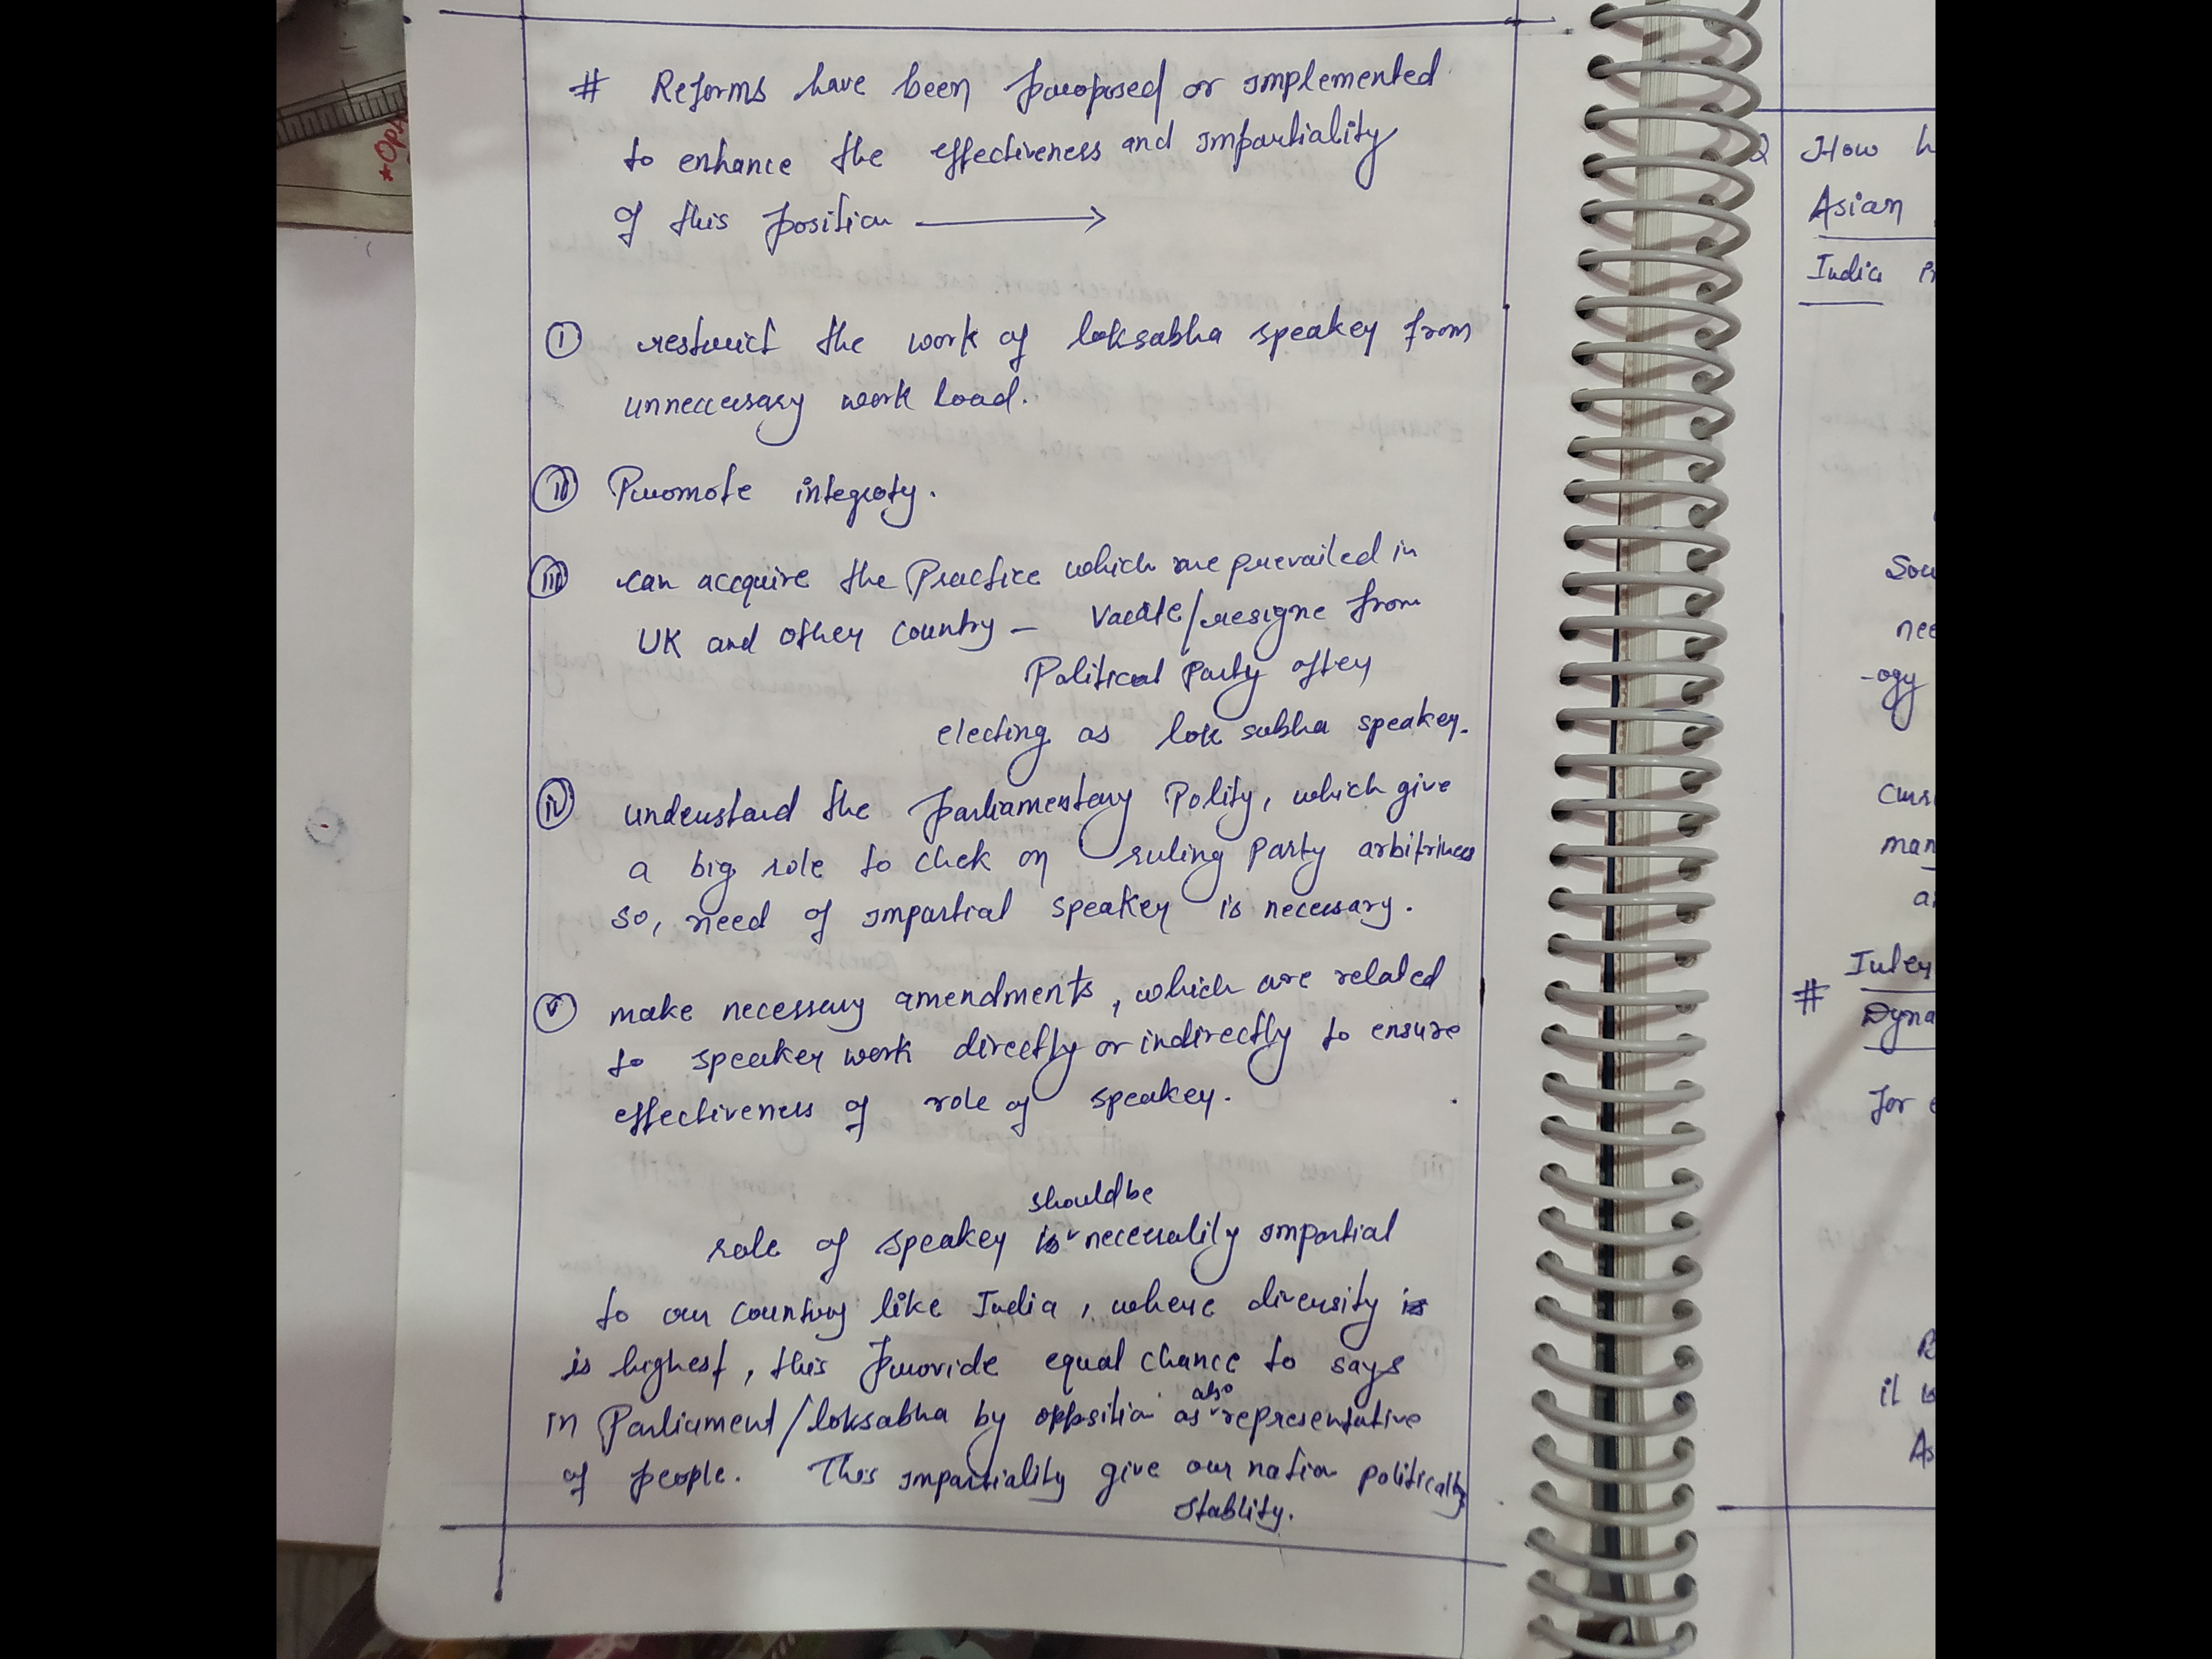 # Reforms have been proposed or implemented
to enhance the effectiveness and impartiality
of this position →
(i) restrict the work of loksabha speaker from
unneccessary work load.
(ii) Promote integrity.
(iii) can accquire the Practice which are prevailed in
UK and other country – Vacate/resigne from
Political Party after
electing as lok sabha speaker.
(iv) understand the parliamentary Polity, which give
a big role to chek on ruling Party
so, need of impartial speaker is necessary.
(v) make necessary amendments, which are related
to speaker work directly or indirectly to ensure
effectiveness of role of speaker.
should be
role of speaker is necessality impartial
to our country like India, where diversity is
is highest, this provide equal chance to says
in Parliament/loksabha by oppsition as also representative
of people. This impartiality give our nation politically
stablity.
*OPA
Q How h
Asian
India
Sou
nee
-ogy
man
# Inter
Dyna
for e
il
As